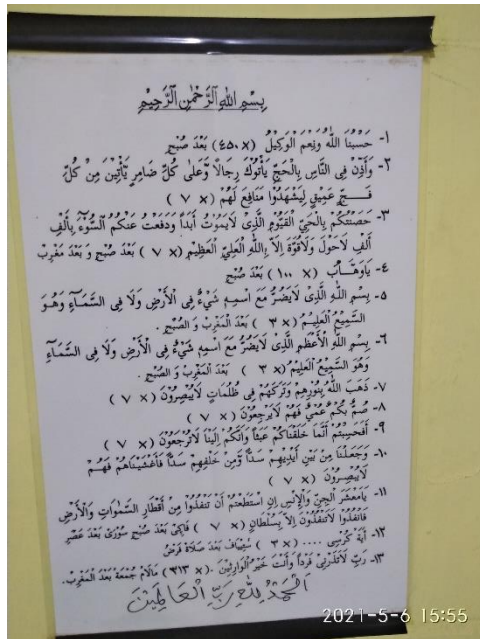 بِسْمِ اللهِ الرَّحْمٰنِ الرَّحِيْمِ
١- حَسْبُنَا اللهُ وَنِعْمَ الْوَكِيْلُ (٤٥٠x) بَعْدَ صُبْحِ
٢- وَأَذِّنْ فِى النَّاسِ بِالْحَجِّ يَأْتُوْكَ رِجَالاً وَّعَلىٰ كُلِّ ضَامِرٍ يَّأْتِيْنَ مِنْ كُلِّ
فَـجٍّ عَمِيْقٍ لِيَشْهَدُوْا مَنَافِعَ لَهُمْ (٧ x)
٣- حَصَنْتُكُمْ بِالْحَيِّ الْقَيُّوْمِ الَّذِىْ لَايَمُوْتُ أَبَداً وَدَفَعْتُ عَنْكُمُ السُّوْءَ بِأَلْفِ
أَلْفِ لَاحَوْلَ وَلَاقُوَّةَ اِلاَّ بِاللهِ الْعَلِيِّ الْعَظِيْمِ (٧ x) بَعْدَ صُبْحِ وَ بَعْدَ مَغْرِبْ
٤- يَاوَهَّابُ (١٠٠ x) بَعْدَ صُبْحِ
٥- بِسْمِ اللهِ الَّذِىْ لَايَضُرُّ مَعَ اسْمِهِ شَيْءٌ فِى الْأَرْضِ وَلَا فِى السَّمَاءِ وَهُوَ
السَّمِيْعُ الْعَلِيْمُ (٣ x) بَعْدَ الْمَغْرِبْ وَ الصُّبْحِ .
٦- بِسْمِ اللهِ الْأَعْظَمِ الَّذِىْ لَايَضُرُّ مَعَ اسْمِهِ شَيْءٌ فِى الْأَرْضِ وَلَا فِى السَّمَاءِ
وَهُوَ السَّمِيْعُ الْعَلِيْمُ (٣ x) بَعْدَ الْمَغْرِبْ وَ الصُّبْحِ .
٧- ذَهَبَ اللهُ بِنُوْرِهِمْ وَتَرَكَهُمْ فِى ظُلُمَاتٍ لَايُبْصِرُوْنَ (٧ x)
٨- صُمٌّ بُكْمٌ عُمْيٌ فَهُمْ لَايَرْجِعُوْنَ (٧ x)
٩- أَفَحَسِبْتُمْ أَنَّمَا خَلَقْنَاكُمْ عَبَثاً وَأَنَّكُمْ إِلَيْنَا لَاتُرْجَعُوْنَ (٧ x)
١٠- وَجَعَلْنَا مِنْ بَيْنِ أَيْدِيْهِمْ سَدًّا وَّمِنْ خَلْفِهِمْ سَدًّا فَأَغْشَيْنَاهُمْ فَهُمْ
لَايُبْصِرُوْنَ (٧ x)
١١- يَامَعْشَرَ الْجِنِّ وَالْإِنْسِ إِنِ اسْتَطَعْتُمْ أَنْ تَنْفُذُوْا مِنْ أَقْطَارِ السَّمٰوَاتِ وَالْأَرْضِ
فَانْفُذُوْا لَاتَنْفُذُوْنَ اِلاَّ بِسُلْطَانٍ (٧ x) بَعْدَ صُبْحِ بَعْدَ عَصْرِ
١٢- آيَةْ كُرْسِى .... (٣ x) بَعْدَ صَلَاةْ فَرْضُ
١٣- رَبِّ لَاتَذَرْنِىْ فَرْداً وَأَنْتَ خَيْرُ الْوَارِثِيْنَ . (٣١٣ x) مَالَامْ جُمْعَةْ بَعْدَ الْمَغْرِبْ .
اَلْحَمْدُ لِلهِ رَبِّ الْعَالَمِيْنَ
2021-5-6 15:55